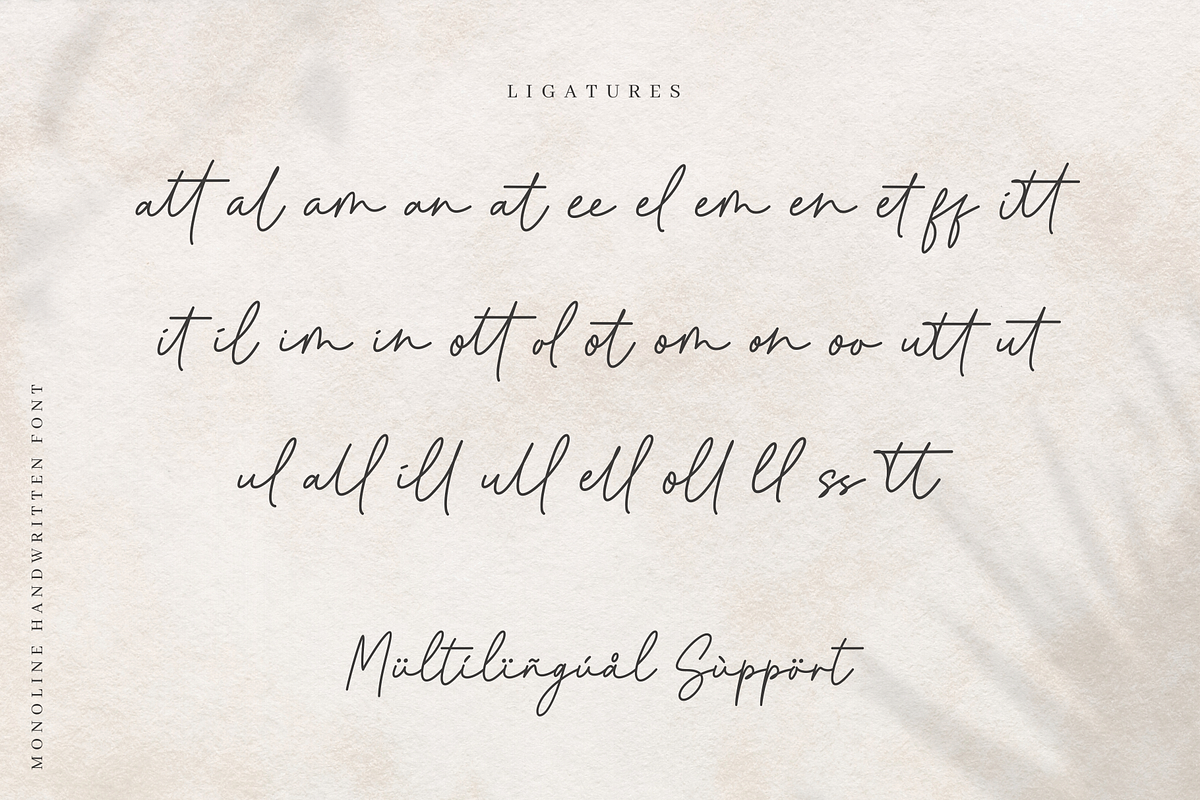 LIGATURES
att al am an at ee el em en et ff itt
it il im in ott ol ot om on oo utt ut
ul all ill ull ell oll ll ss tt
Mültílïñgúål Sùppört
MONOLINE HANDWRITTEN FONT